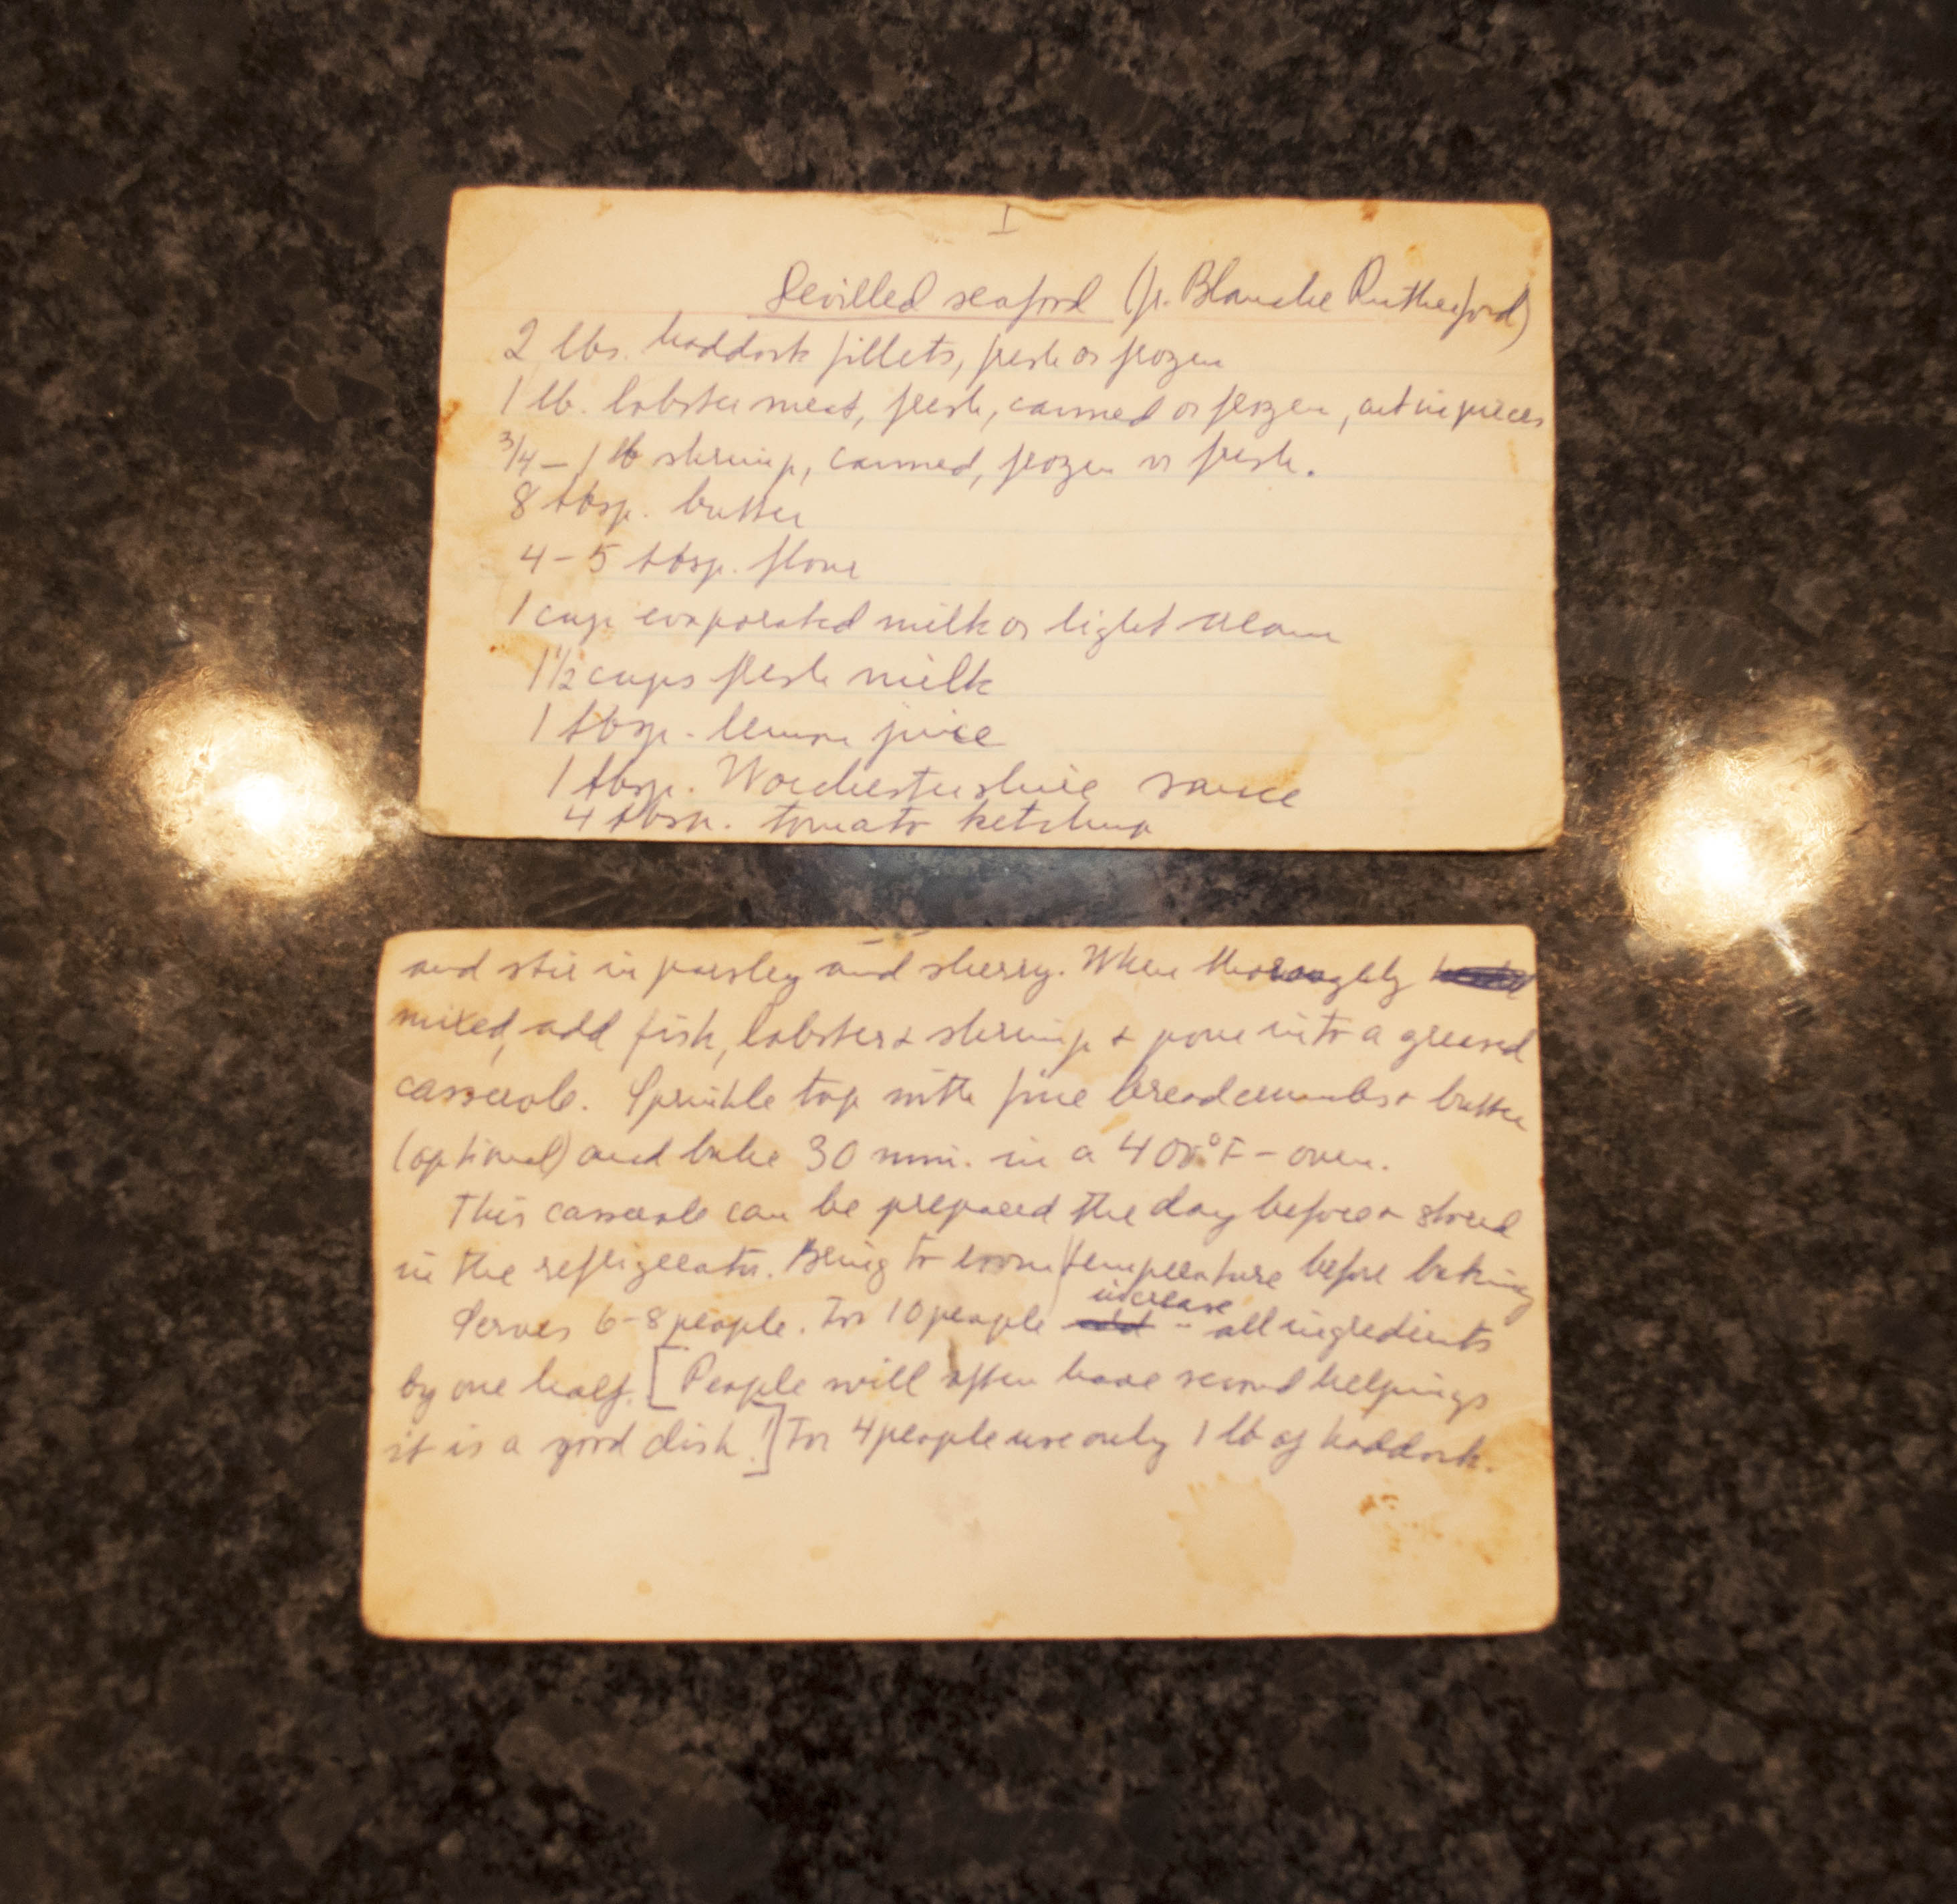 I
Devilled seafood (fr. Blanche Rutherford)
2 lbs. haddock fillets, fresh or frozen
1 lb. lobster meat, fresh, canned or frozen, cut in pieces
3/4 – 1 lb shrimp, canned, frozen or fresh.
8 tbsp. butter
4 – 5 tbsp. flour
1 cup evaporated milk or light cream
1 1/2 cups fresh milk
1 tbsp. lemon juice
1 tbsp. Worchestershire sauce
4 tbsp. tomato ketchup
and stir in parsley and sherry. When thoroughly
mixed, add fish, lobster & shrimp & pour into a greased
casserole. Sprinkle top with fine breadcrumbs & butter
(optional) and bake 30 min. in a 400°F – oven.
This casserole can be prepared the day before & stored
in the refrigerator. Bring to room temperature before baking
increase
Serves 6-8 people. For 10 people add all ingredients
by one half. [People will often have second helpings
it is a good dish!] For 4 people use only 1 lb of haddock.